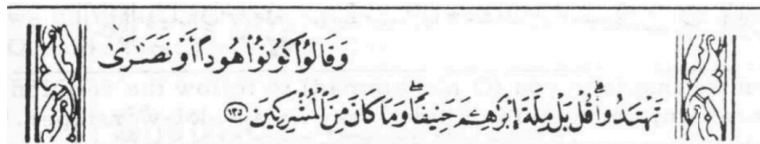 وَقَالُوا۟ كُونُوا۟ هُودًا أَوْ نَصَٰرَىٰ
تَهْتَدُوا۟ ۗ قُلْ بَلْ مِلَّةَ إِبْرَٰهِـۧمَ حَنِيفًا ۖ وَمَا كَانَ مِنَ ٱلْمُشْرِكِينَ ۝١٣٥